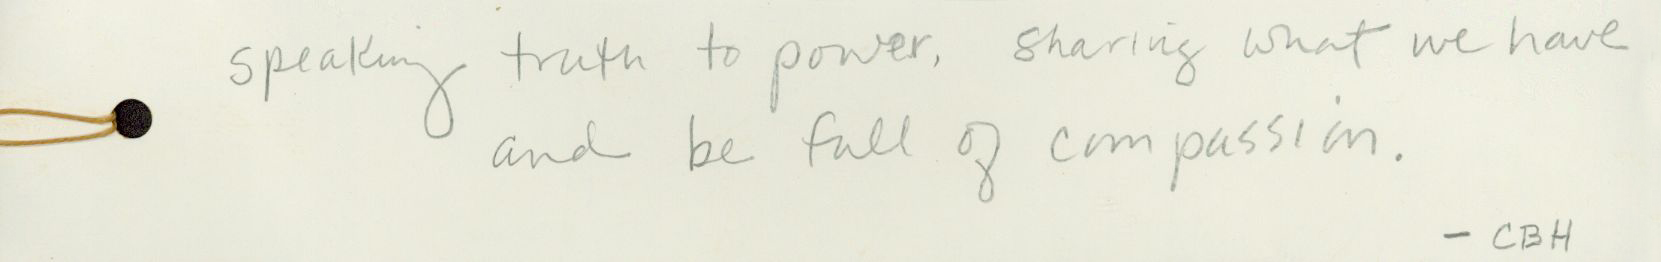 speaking truth to power, sharing what we have
and be full of compassion.
- CBH